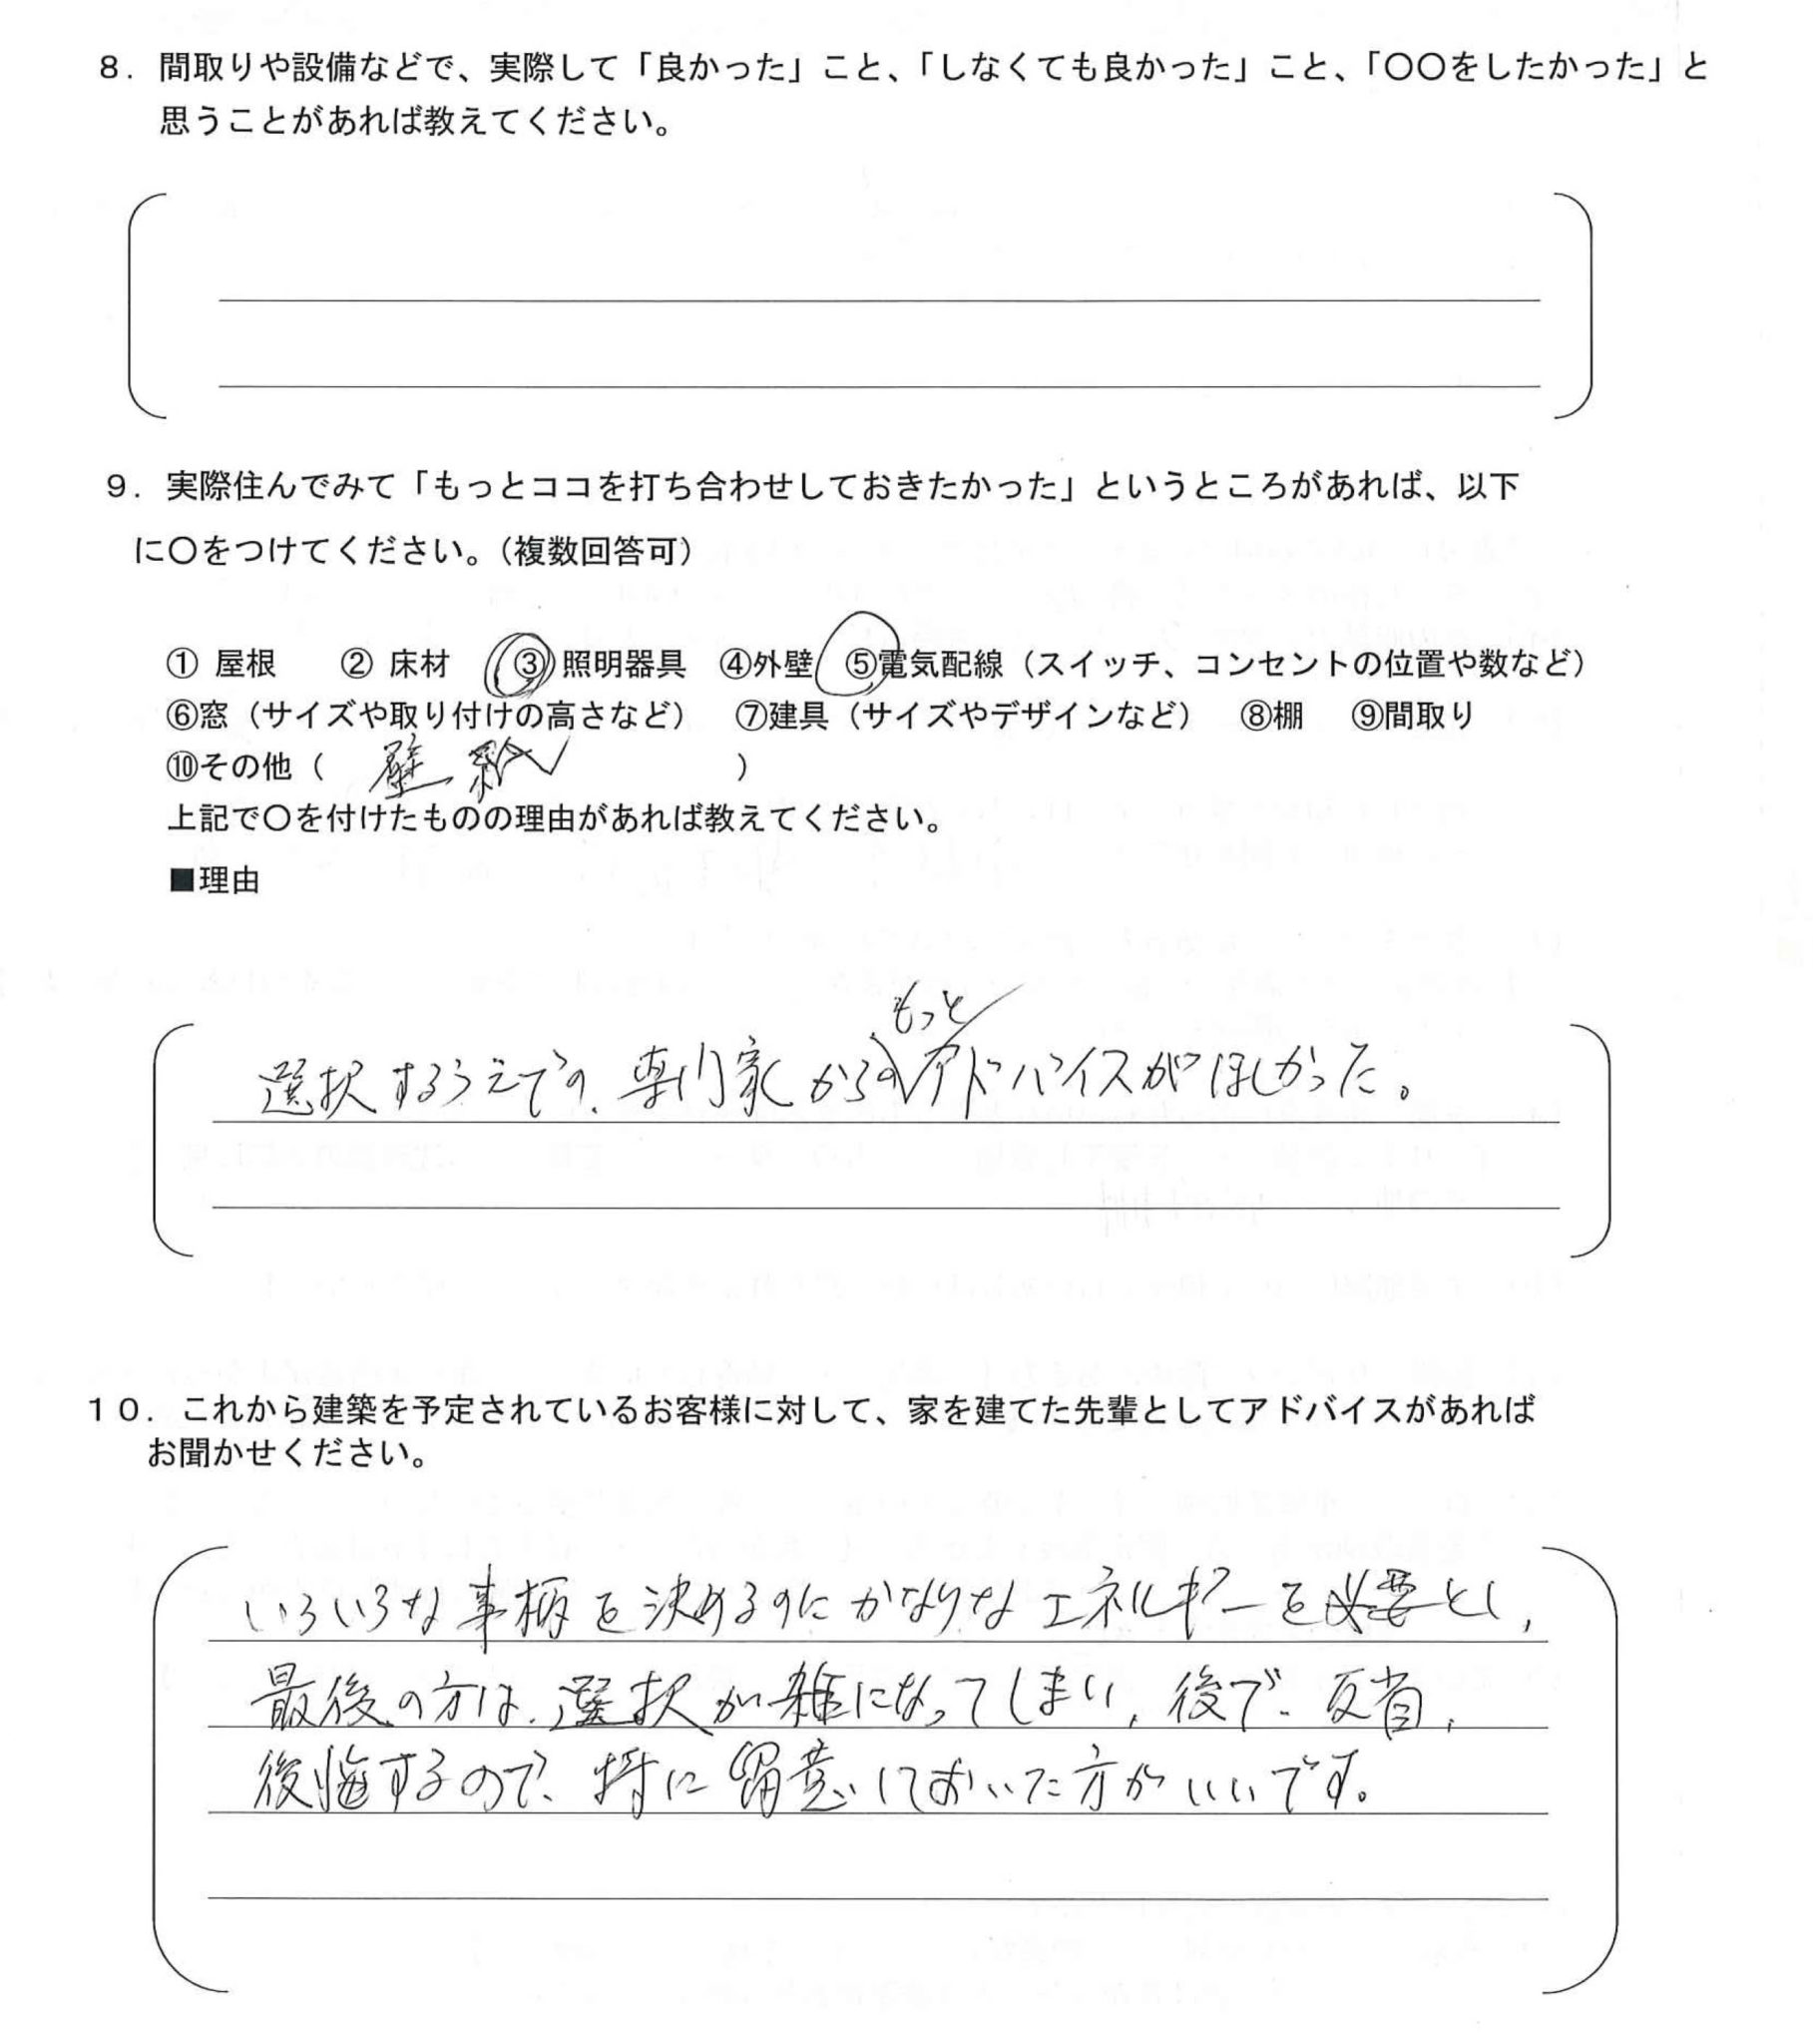 8．間取りや設備などで、実際して「良かった」こと、「しなくても良かった」こと、「〇〇をしたかった」と
思うことがあれば教えてください。
9．実際住んでみて「もっとココを打ち合わせしておきたかった」というところがあれば、以下
に〇をつけてください。（複数回答可）
① 屋根　② 床材　③ 照明器具　④外壁　⑤電気配線（スイッチ、コンセントの位置や数など）
⑥窓（サイズや取り付けの高さなど）　⑦建具（サイズやデザインなど）　⑧棚　⑨間取り
⑩その他（　壁紙　）
上記で〇を付けたものの理由があれば教えてください。
■理由
もっと
選択するうえでの、専門家からのアドバイスがほしかった。
１０．これから建築を予定されているお客様に対して、家を建てた先輩としてアドバイスがあれば
お聞かせください。
いろいろな事柄を決めるのにかなりなエネルギーを必要とし、
最後の方は、選択が雑になってしまい、後で、反省、
後悔するので、特に留意しておいた方がいいです。